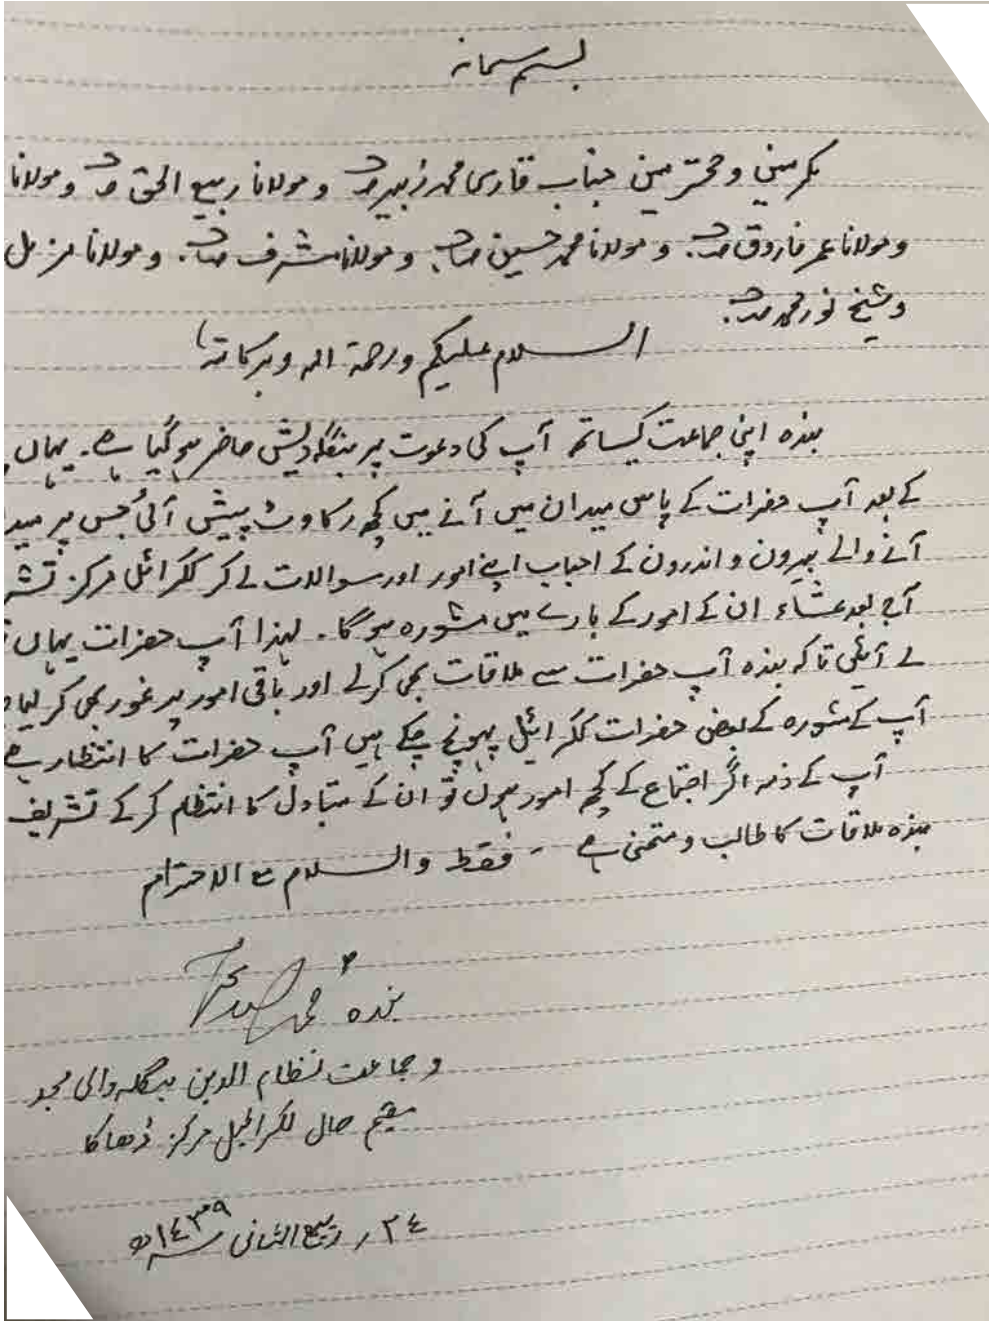 بسم سبحانہ
مکرمین و محترمین جناب قاری محمد زبیر صاحب و مولانا ربیع الحق صاحب و مولانا
و مولانا عمر فاروق صاحب و مولانا محمد حسین صاحب و مولانا مشرف صاحب و مولانا مزمل
و شیخ نور محمد صاحب
السلام علیکم ورحمۃ اللہ وبرکاتہ
بندہ اپنی جماعت کیساتھ آپ کی دعوت پر بنگلہ دیش حاضر ہو گیا ہے۔ یہاں
کے بعد آپ حضرات کے پاس میدان میں آنے میں کچھ رکاوٹ پیش آئی جس پر
آنے والے بیرون و اندرون کے احباب اپنے امور اور سوالات لے کر ککرائل مرکز
آج بعد عشاء ان کے امور کے بارے میں مشورہ ہو گا۔ لہذا آپ حضرات یہاں
لے آئیں تاکہ بندہ آپ حضرات سے ملاقات بھی کرلے اور باقی امور پر غور بھی کر لیا
آپ کے مشورہ کے بعض حضرات ککرائیل پہونچ چکے ہیں آپ حضرات کا انتظار ہے
آپ کے ذمہ اگر اجتماع کے کچھ امور ہوں تو ان کے متبادل کا انتظام کر کے تشریف
بندہ ملاقات کا طالب و متمنی ہے - فقط والسلام مع الاحترام
بندہ محمد سعد
و جماعت نظام الدین بنگلہ والی مسجد
مقیم حال ککرائیل مرکز ڈھاکا
٢٤ / ربیع الثانی ١٤٣٩ھ